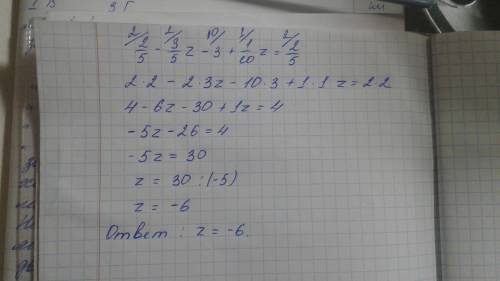 1 В 3 Г
2/ 2/5 - 2/ 3/5 z - 10/ 3 + 1/ 1/10 z = 2/ 2/5
2·2 - 2·3z - 10·3 + 1·1z = 2·2
4 - 6z - 30 + 1z = 4
-5z - 26 = 4
-5z = 30
z = 30 : (-5)
z = -6
Ответ : z = -6.